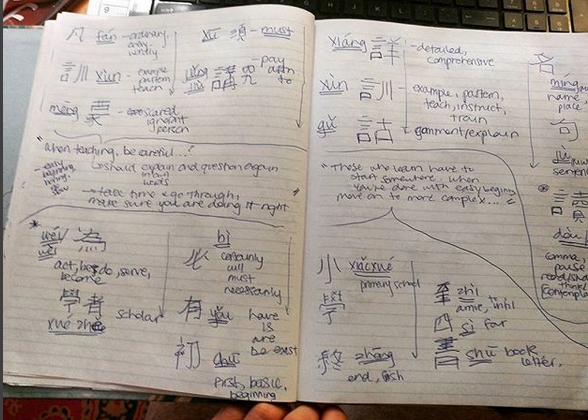 凡 fán - ordinary
any
xū 須 - must
訓 xùn - example
pattern
teach
pay
attn
to
méng 蒙 -
ignorant
person
"when teaching, be careful...?
should explain and question again
→ take time & go through,
make sure you are doing it right
為
act, be, do, serve,
become
bì
必 certainly
will
must
necessarily
學者 scholar
xué zhě
有 yǒu have
is
are
be exist
初 chū
first, basic,
beginning
xiáng 詳 - detailed,
comprehensive
xùn 訓 - example, pattern,
teach, instruct,
train
gǔ 詁 - comment/explain
"Those who learn have to
start somewhere. When
you're done with easy beginning
move on to more complex..."
小 xiǎoxué
學 primary school
終 zhōng
end, finish
至 zhì
arrive, until
四 sì four
書 shū book
letter.
名
míng
name
place
句
jù
讀
dòu
comma,
pause
think